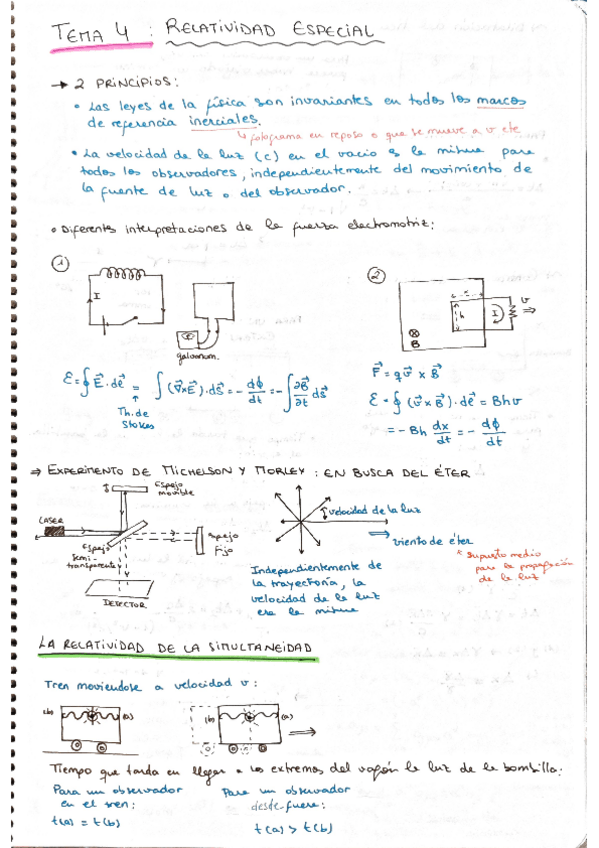 TEMA 4 : RELATIVIDAD ESPECIAL
→ 2 PRINCIPIOS:
• Las leyes de la física son invariantes en todos los marcos
de referencia inerciales.
↳ fotograma en reposo o que se mueve a v cte
• La velocidad de la luz (c) en el vacío es la misma para
todos los observadores, independientemente del movimiento de
la fuente de luz o del observador.
• Diferentes interpretaciones de la fuerza electromotriz:
①
I
galvanom.
②
x
h
I
v
⇒
⊗
B
ℰ = ∮ E⃗·dℓ⃗ = ∫(∇⃗×E⃗)·dS⃗ = - dϕ/dt = -∫ ∂B⃗/∂t dS⃗
↑
Th. de
Stokes
F⃗ = qv⃗ × B⃗
ℰ = ∮ (v⃗ × B⃗)·dℓ⃗ = Bhv
= - Bh dx/dt = - dϕ/dt
⇒ EXPERIMENTO DE MICHELSON Y MORLEY : EN BUSCA DEL ÉTER
Espejo
movible
LASER
Espejo
semi-
transparente
Espejo
Fijo
DETECTOR
velocidad de la luz
⇒ viento de éter
* supuesto medio
para la propagación
de la luz
Independientemente de
la trayectoria, la
velocidad de la luz
era la misma
LA RELATIVIDAD DE LA SIMULTANEIDAD
Tren moviendose a velocidad v:
(b) (a)
(b) (a) ⇒
Tiempo que tarda en llegar a los extremos del vagón la luz de la bombilla:
Para un observador
en el tren:
t(a) = t(b)
Para un observador
desde fuera:
t(a) > t(b)